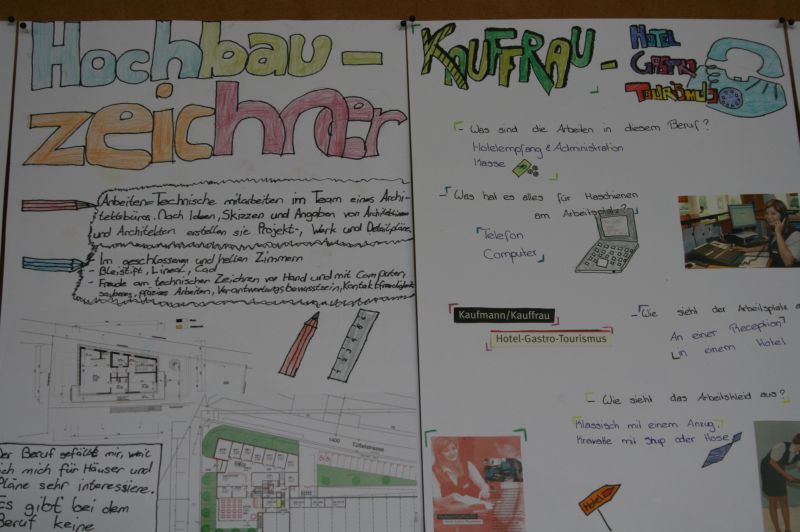 Hochbau-
zeichner
Arbeiten= Technische mitarbeiten im Team eines Archi-
tektsbüros. Nach Ideen, Skizzen und Angaben von Architektinnen
und Architekten erstellen sie Projekt-, Werk und Detailpläne
Im geschlossenen und hellen Zimmern
- Bleistift, Lineal, Cad
- Freude am technischen Zeichnen von Hand und mit Computer,
sauberes, präzises Arbeiten, Verantwortungsbewusstsein, Kontaktfreudigkeit
1400 Tüffelstrasse
Der Beruf gefällt mir, weil
ich mich für Häuser und
Pläne sehr interessiere.
Es gibt bei dem
Beruf keine
KAUFFRAU - HOTEL
GASTRO
TOURISMUS
- Was sind die Arbeiten in diesem Beruf?
Hotelempfang & Administration
Kasse
- Was hat es alles für Maschienen
am Arbeitsplatz?
Telefon
Computer
Kaufmann/Kauffrau
Hotel-Gastro-Tourismus
- Wie sieht der Arbeitsplatz a
An einer Reception?
in einem Hotel
- Wie sieht das Arbeitskleid aus?
Klassisch mit einem Anzug,
Kravatte mit Jup oder Hose
Hotel